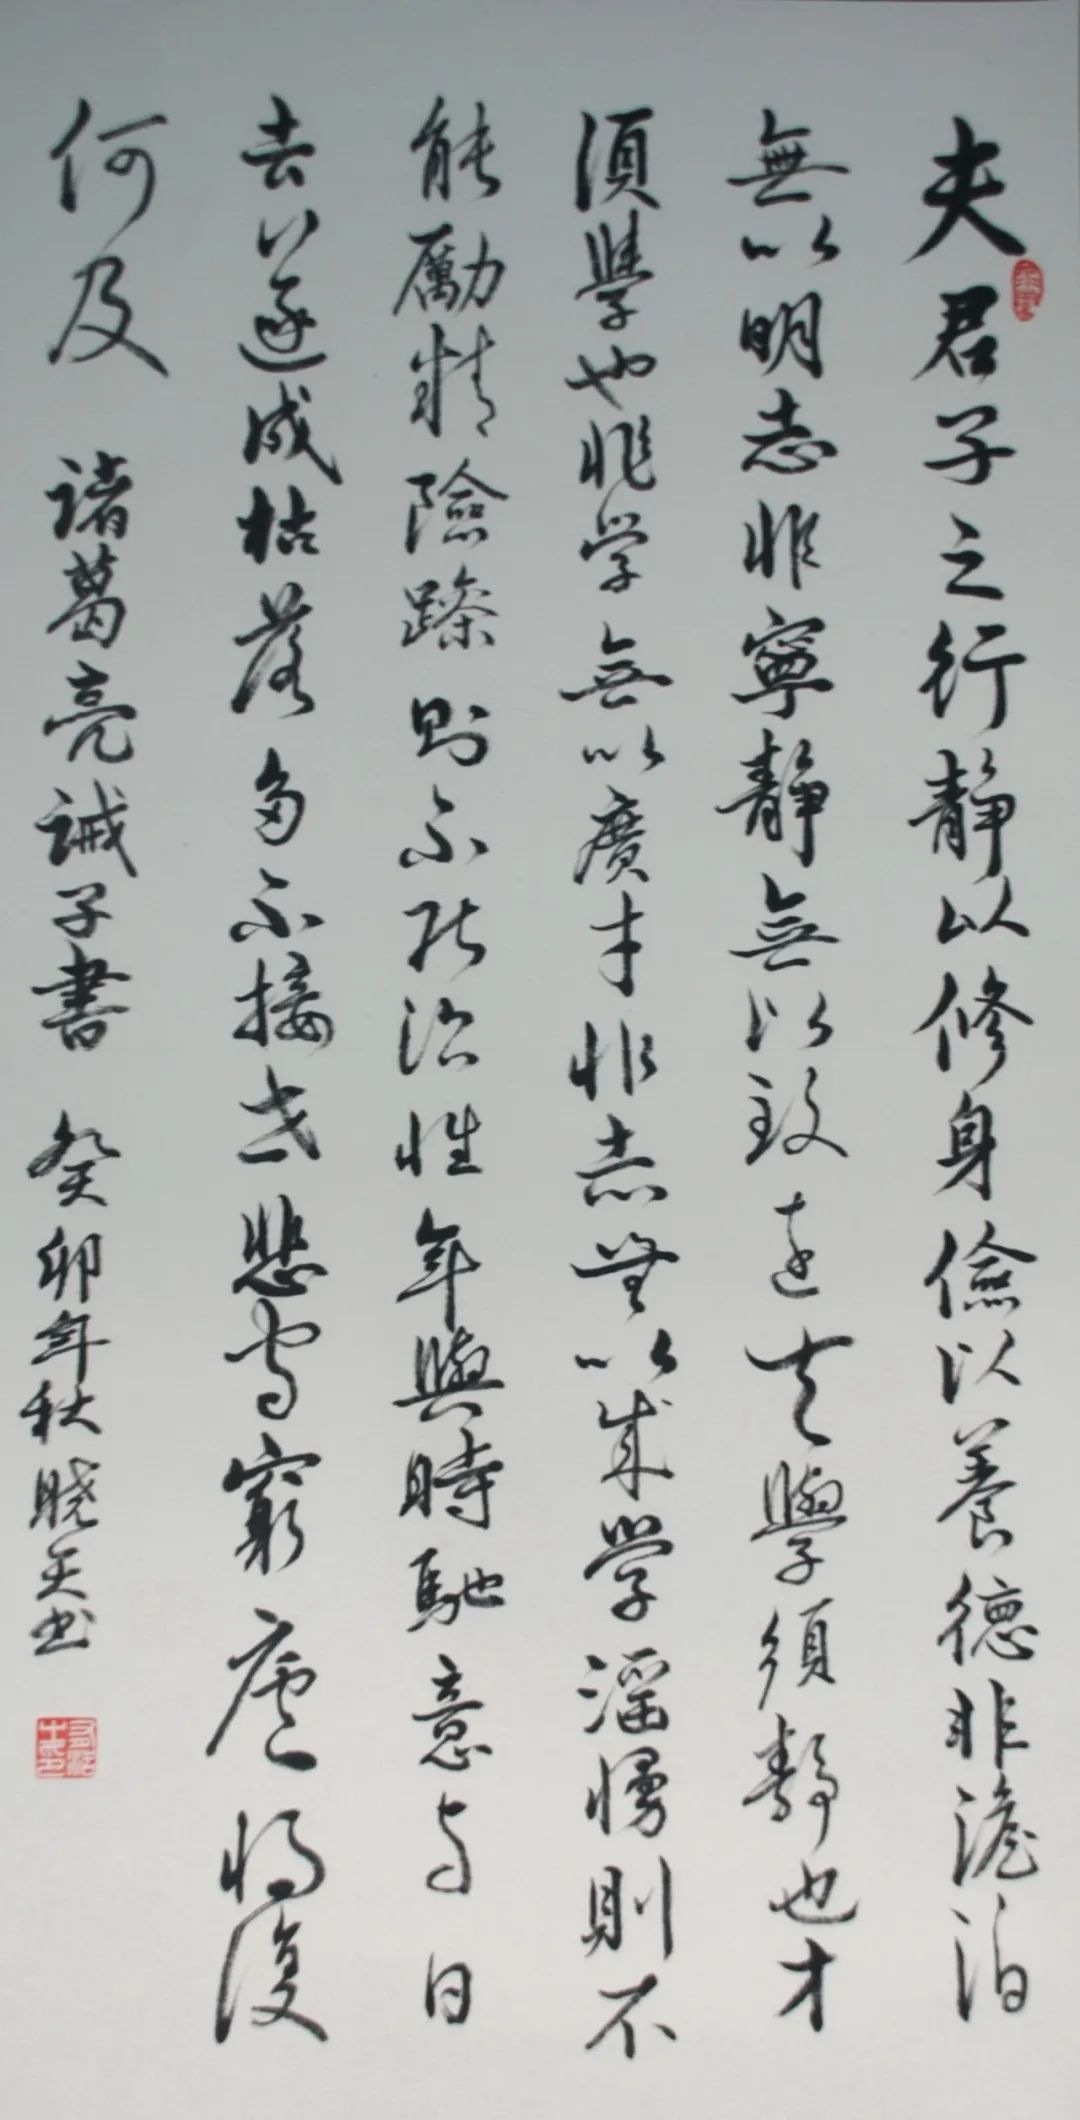 夫君子之行靜以修身儉以養德非澹泊
無以明志非寧靜無以致遠夫學須靜也才
須學也非学無以廣才非志無以成学滛慢則不
能勵精險躁則不能治性年與時馳意与日
去遂成枯落多不接世悲守窮廬将復
何及 諸葛亮誡子書 癸卯年秋晓天书